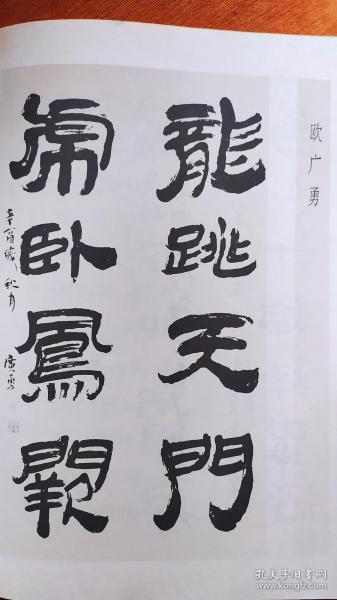 欧广勇
龍跳天門
虎卧鳳闕
辛酉歲秋月 廣勇
孔夫子旧书网